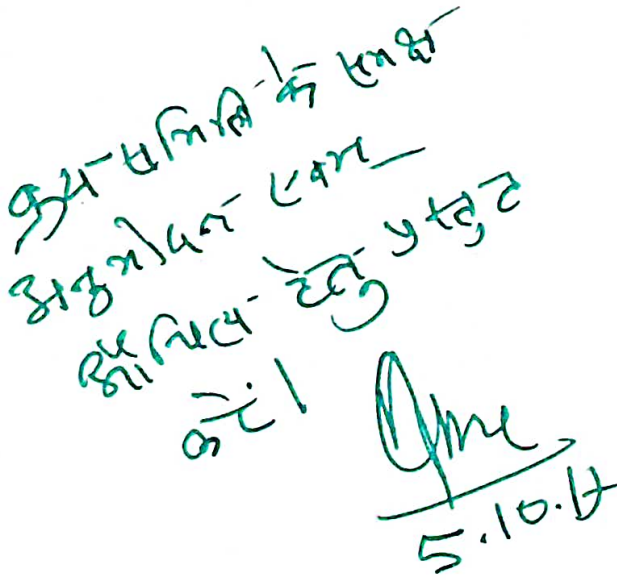 क्रय समिति के समक्ष
अनुमोदन एवम
औचित्य हेतु प्रस्तुत
करें।
5.10.17